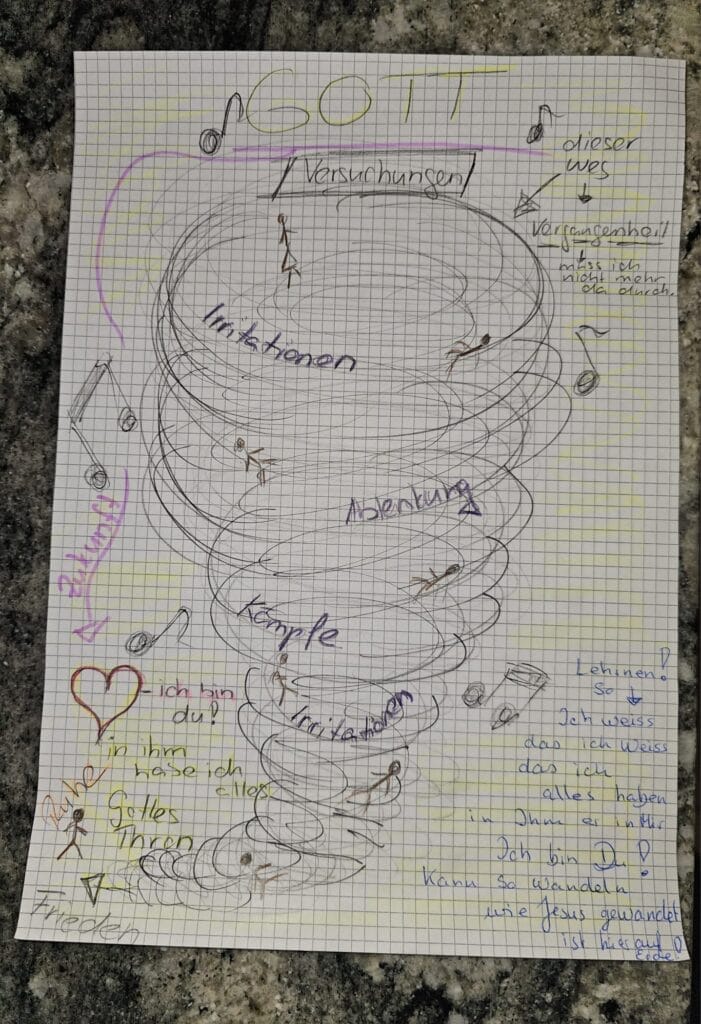 GOTT
Versuchungen
dieser
weg
Vergangenheit
muss ich
nicht mehr
da durch.
Irritationen
Ablenkung
Zukunft
Kämpfe
Irritationen
- ich bin
du!
in ihm
habe ich
alles
Ruhe
Gottes
Thron
Frieden
Lehinen!
So
Ich weiss
das ich weiss
das ich
alles haben
in Ihm er in Mir
Ich bin Du!
Kann so wandeln
wie Jesus gewandelt
ist hier auf
Erde!